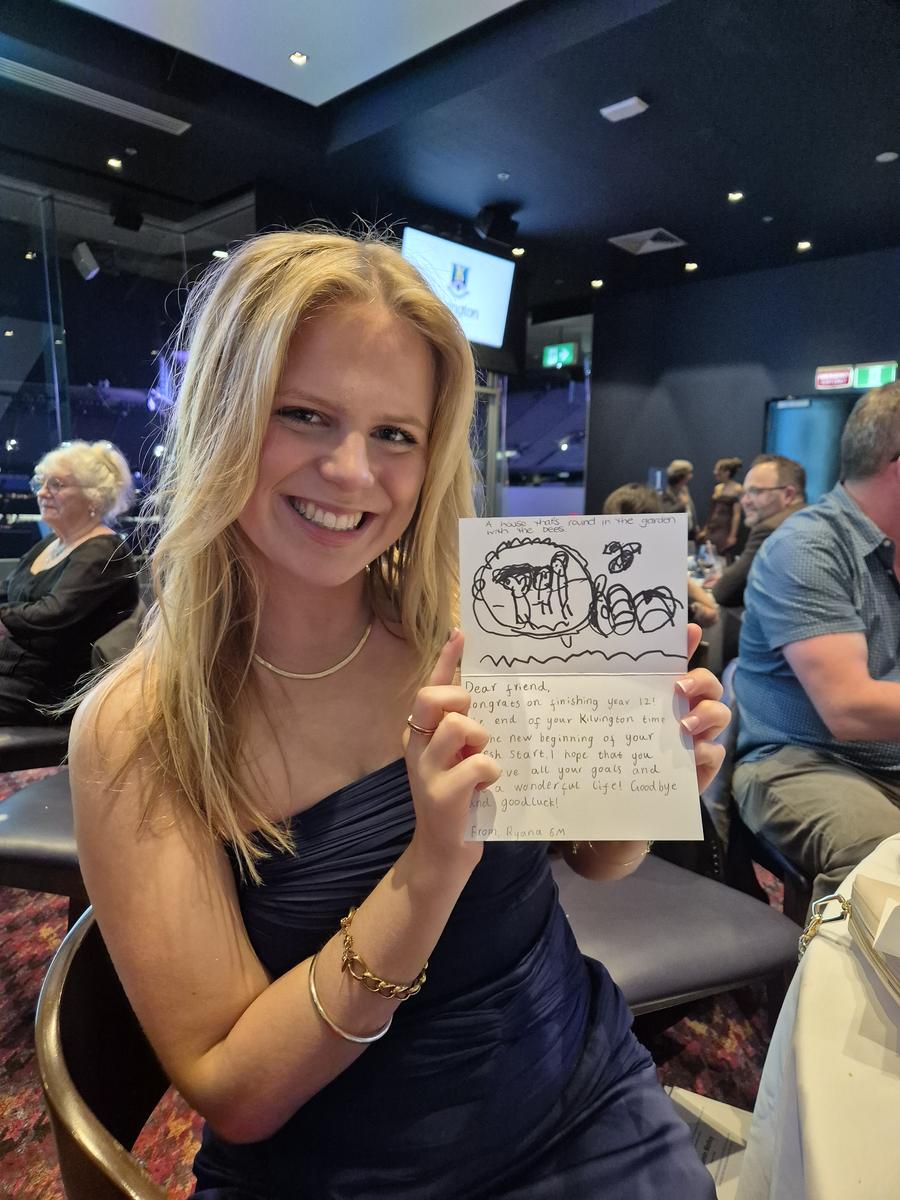 ington
A house that's round in the garden
with the bees.
Dear friend,
ongrats on finishing year 12!
end of your Kilvington time
he new beginning of your
esh start. I hope that you
ve all your goals and
a wonderful life! Goodbye
and goodluck!
From, Ryana 6M